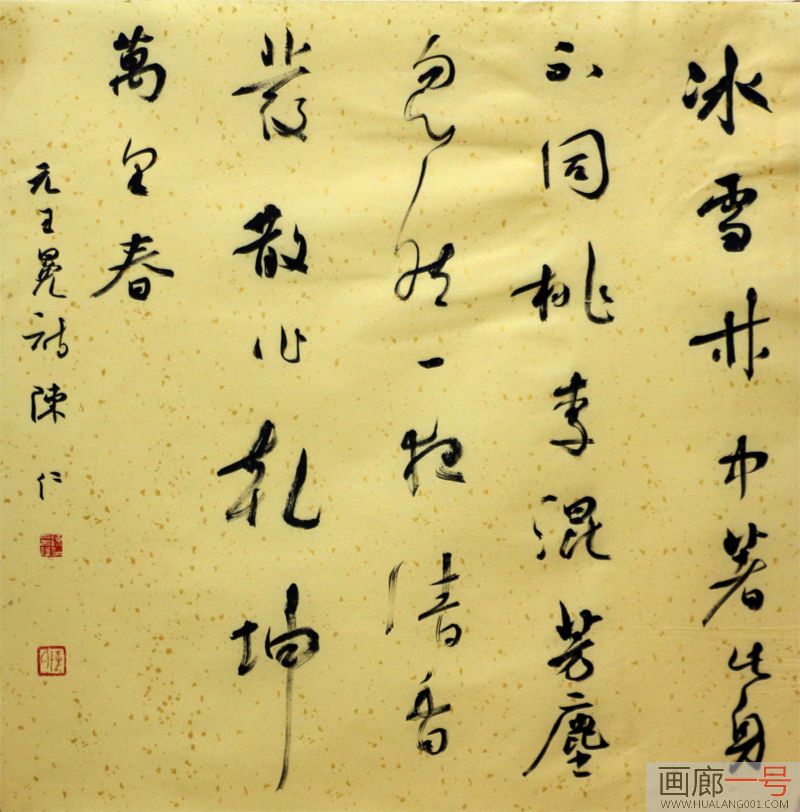 冰雪林中著此身
不同桃李混芳塵
忽然一夜清香
發散作乾坤
萬里春
元王冕詩陳仁
画廊一号
WWW.HUALANG001.COM